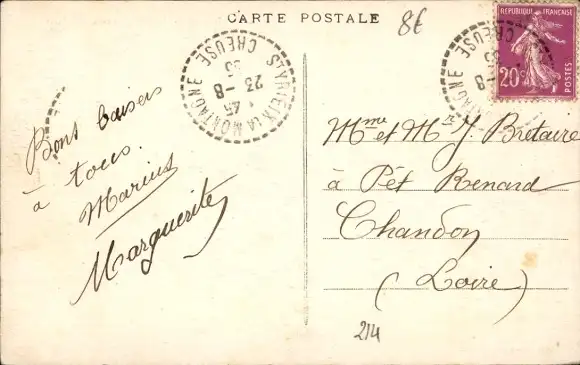 CARTE POSTALE
8€
RÉPUBLIQUE FRANÇAISE
20c
POSTES
ST YRIEIX LA MONTAGNE
CREUSE
1 45
23 - 8
35
Bons baisers
à tous.
Marius
Marguerite
Mme et Mr J. Bretaire
à Pét Renard
Chandon
(Loire)
214